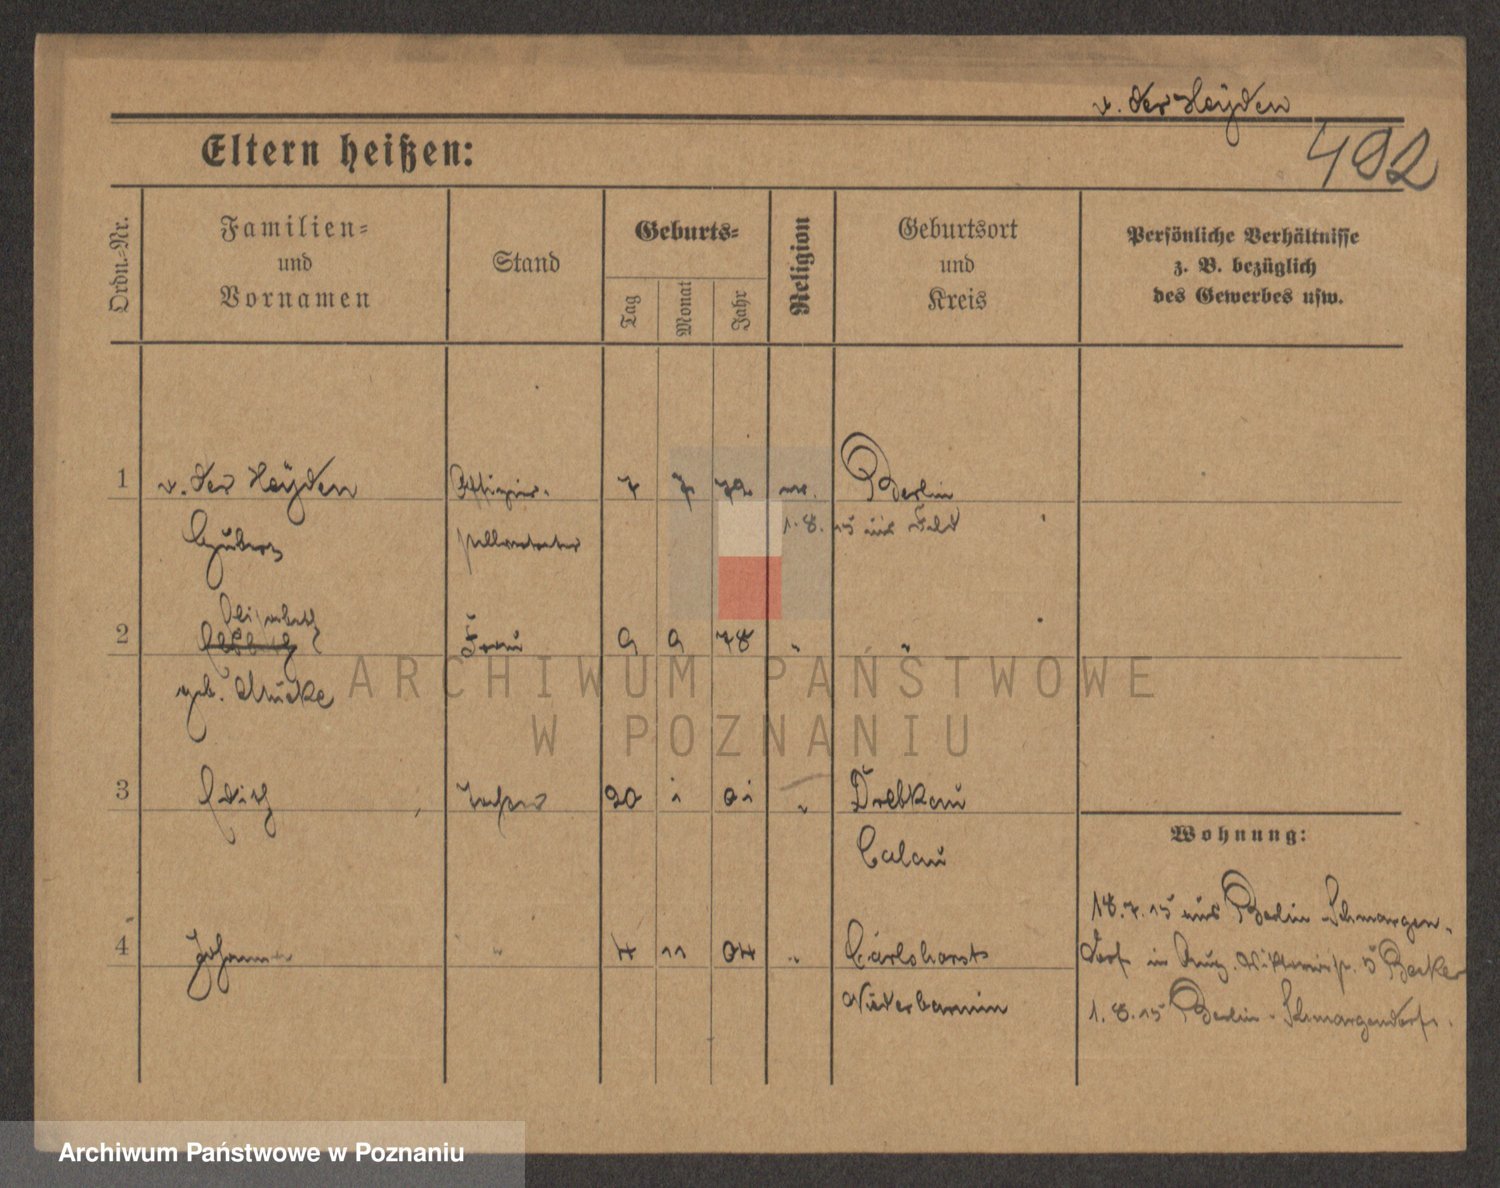 v. der Heyden
492
Eltern heißen:
Ordn.-Nr.
Familien-
und
Vornamen
Stand
Geburts-
Tag
Monat
Jahr
Religion
Geburtsort
und
Kreis
Persönliche Verhältnisse
z. B. bezüglich
des Gewerbes usw.
1 v. der Heyden Offizier- 7 7 72 Berlin
1.8.15 ins Feld
stellvertreter
Elisabeth
2 Frau 9 9 78 " "
geb. Mücke
3 Tochter 20 1 01 " Drebkau
Calau
Wohnung:
18.7.15 aus Berlin-Schmargen-
4 Johanna " 4 11 04 " Carlshorst
dorf in Aug. Viktoriastr. 5 Becker
Niederbarnim
1.8.15 Berlin-Schmargendorf.
ARCHIWUM PAŃSTWOWE
W POZNANIU
Archiwum Państwowe w Poznaniu